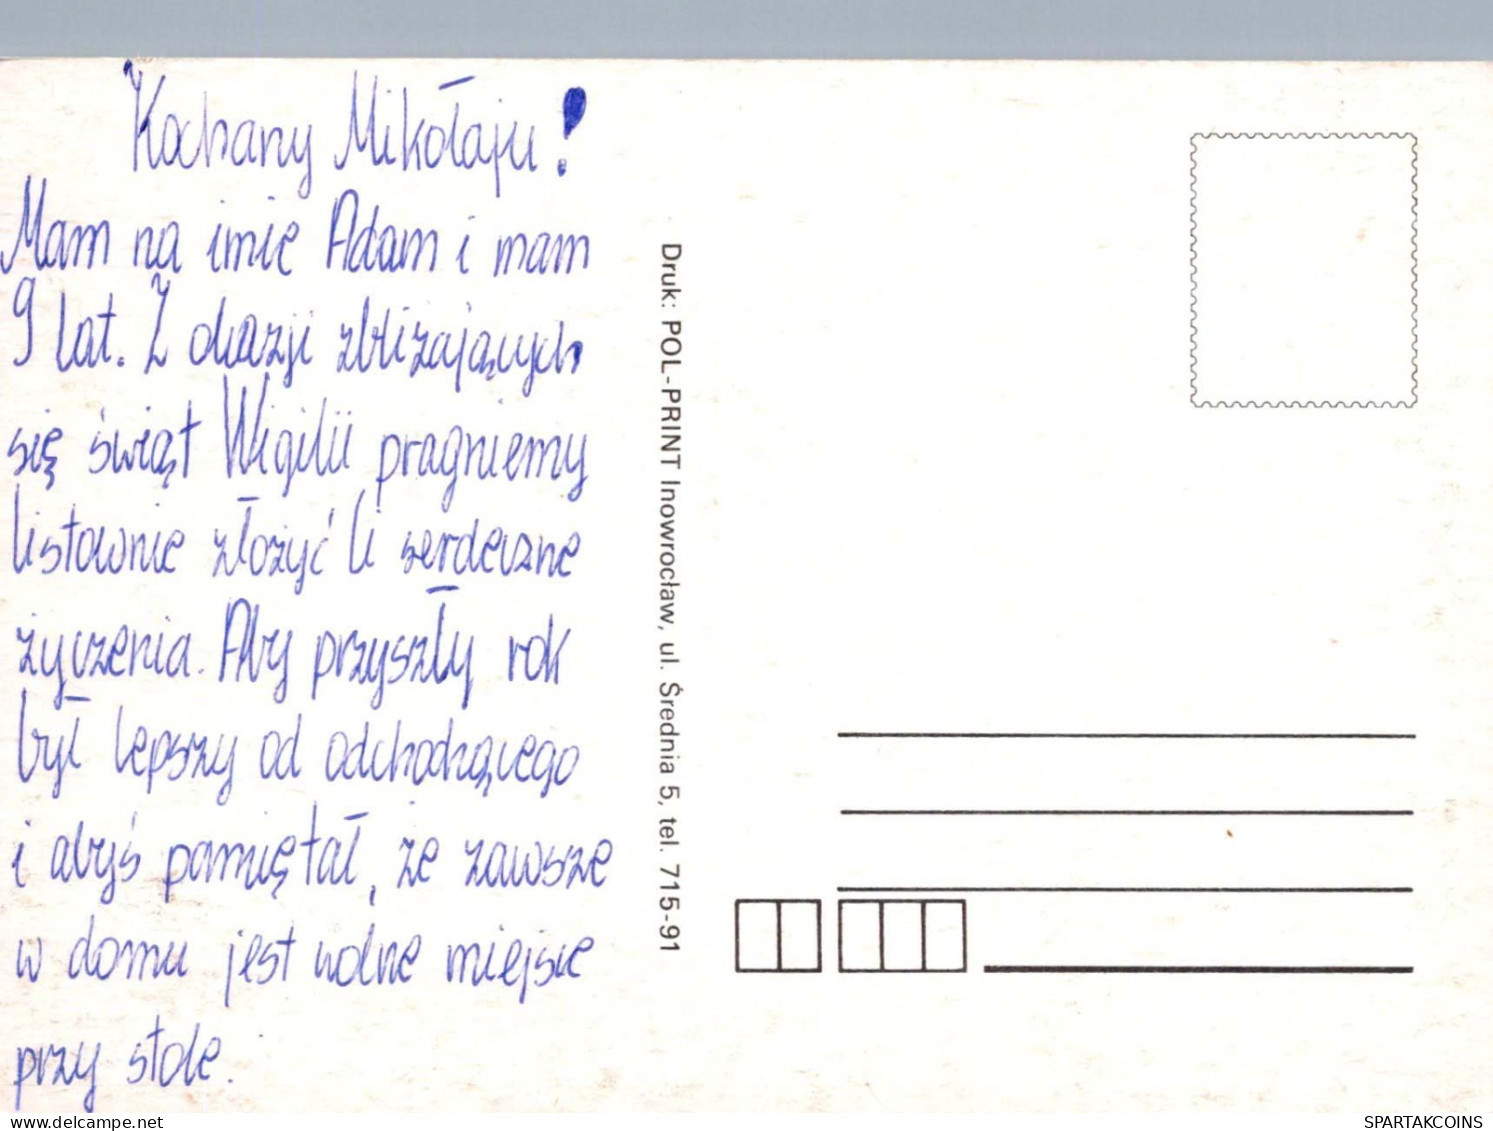 Kochany Mikołaju!
Mam na imie Adam i mam
9 lat. Z okazji zbliżających
się świąt Wigilii pragniemy
listownie złożyć Ci serdeczne
życzenia. Aby przyszły rok
był lepszy od odchodzącego
i abyś pamiętał, że zawsze
w domu jest wolne miejsce
przy stole.
Druk: POL-PRINT Inowrocław, ul. Średnia 5, tel. 715-91
www.delcampe.net
SPARTAKCOINS